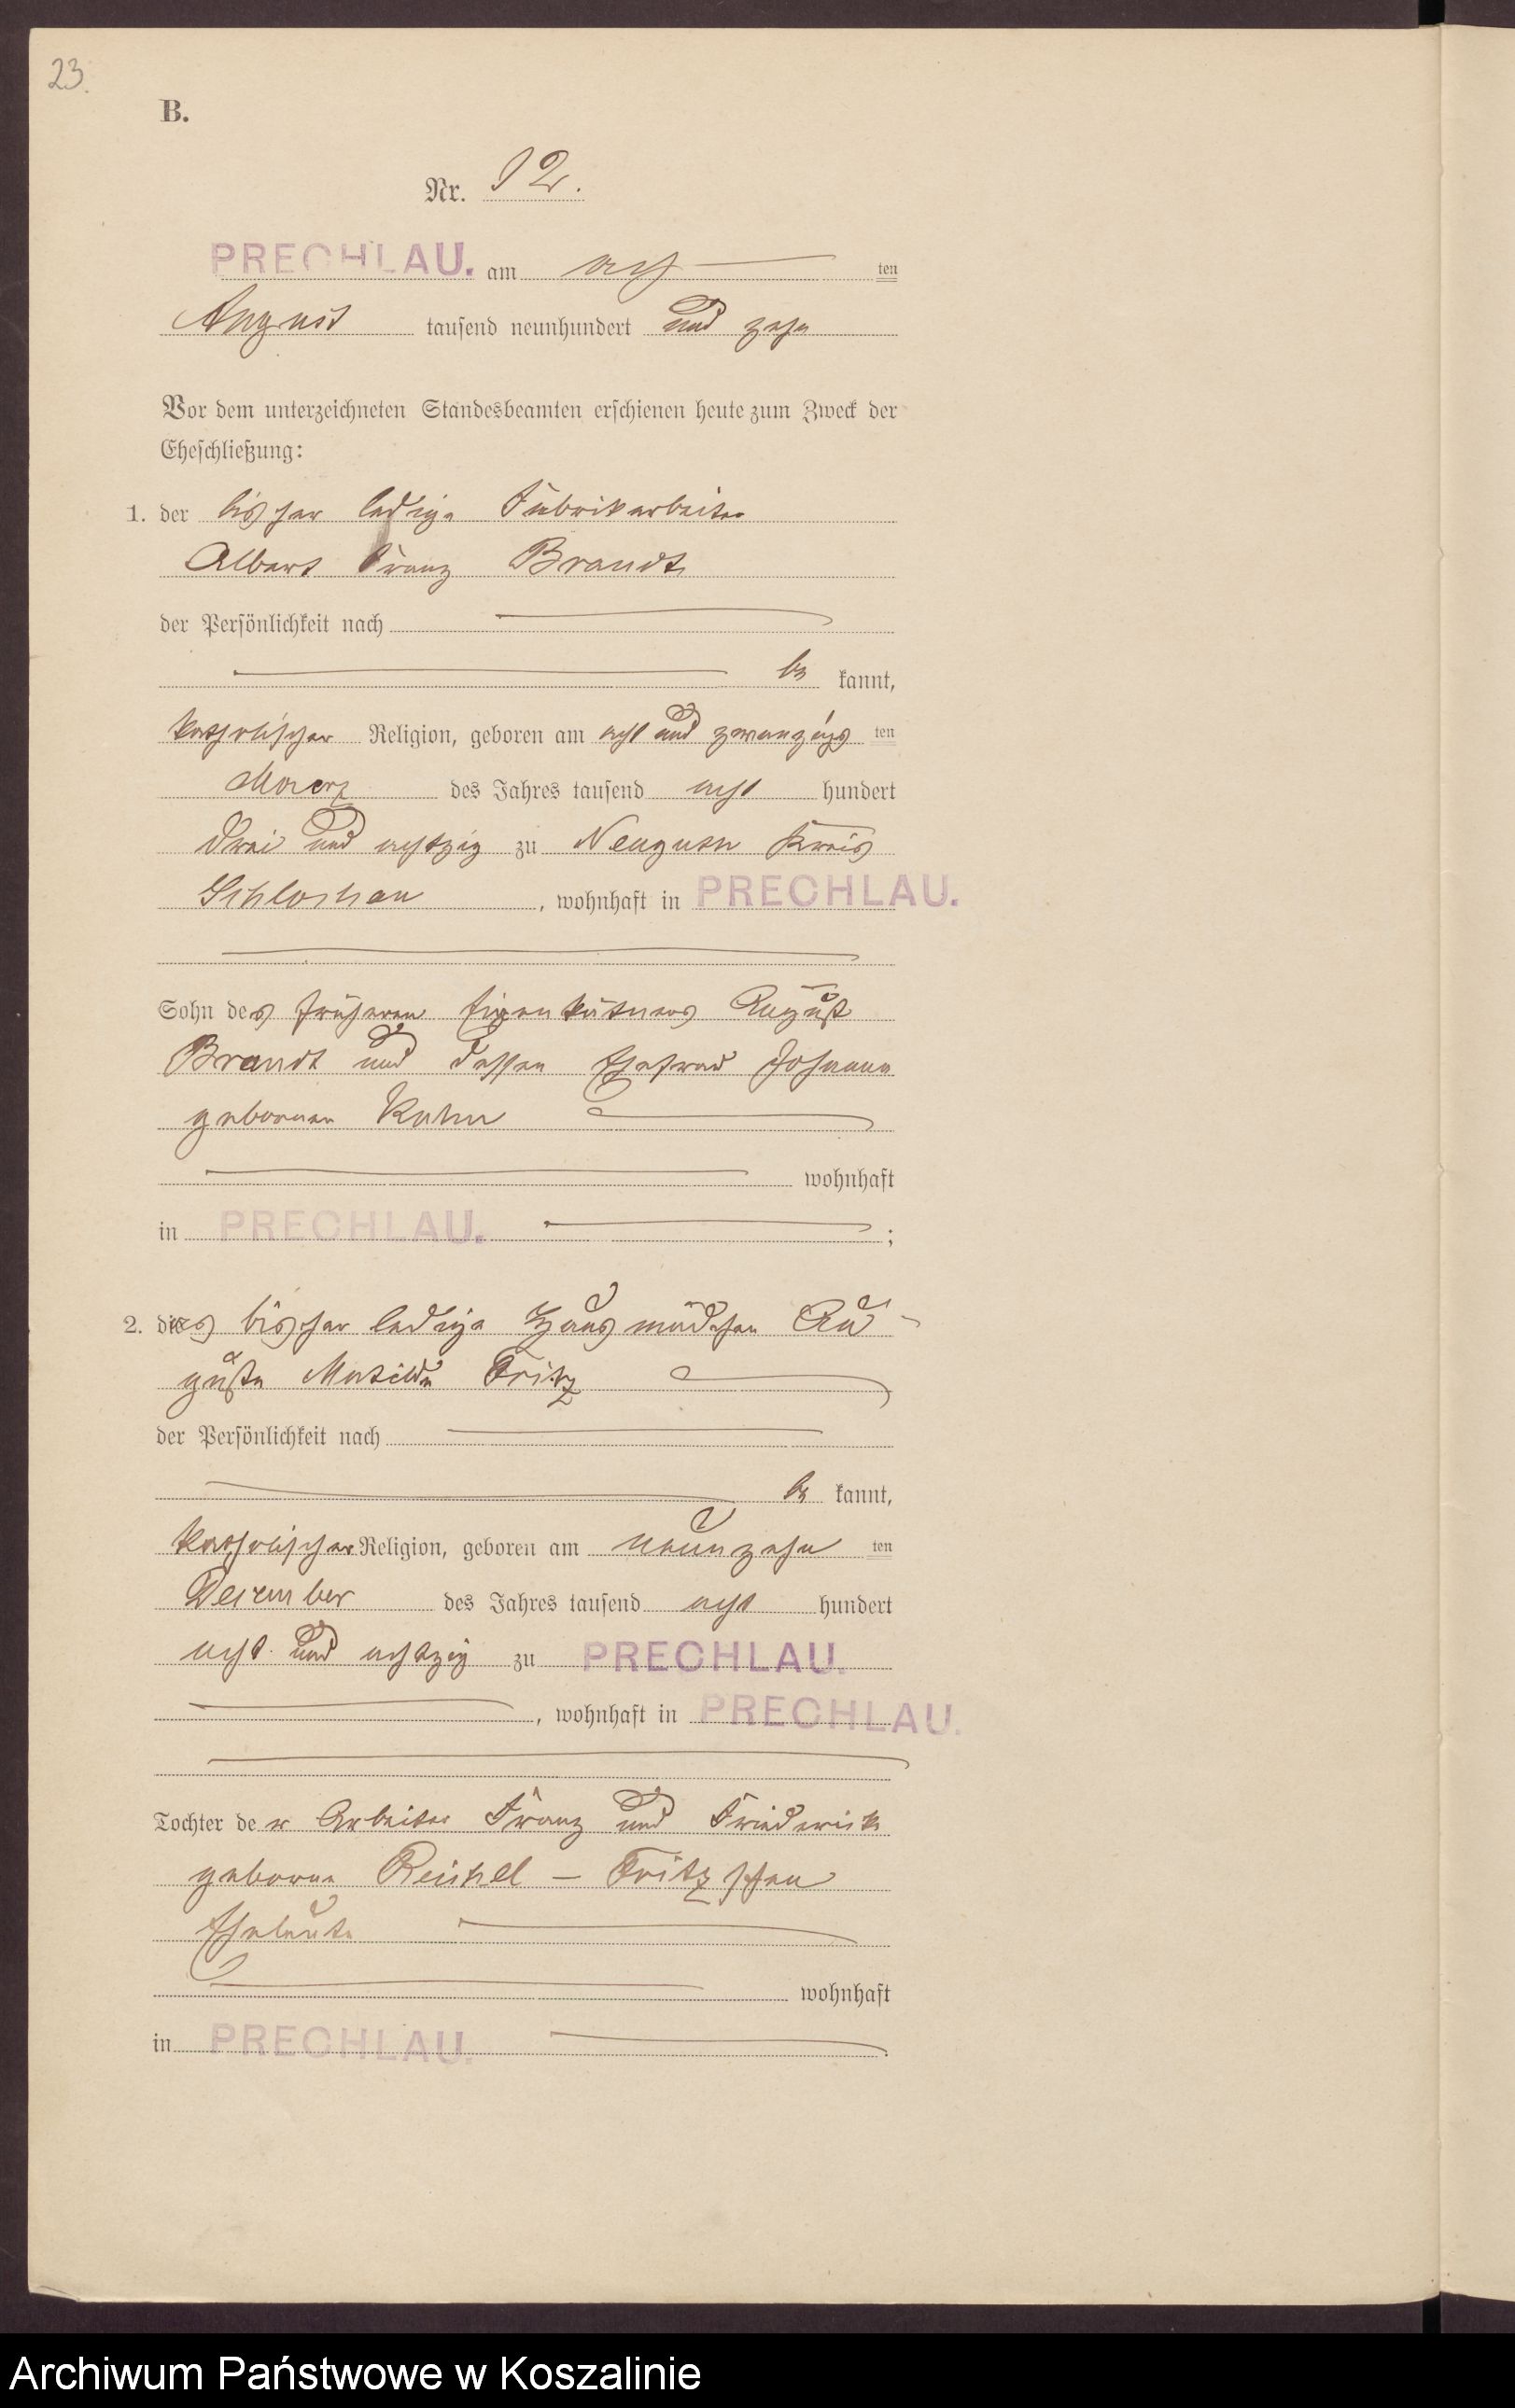 23.
B.
Nr. 12.
PRECHLAU. am acht ten
August tausend neunhundert und zehn
Vor dem unterzeichneten Standesbeamten erschienen heute zum Zweck der
Eheschließung:
1. der bisher ledige Fabrikarbeiter
Albert Franz Brandt
der Persönlichkeit nach
be kannt,
katholischer Religion, geboren am acht und zwanzigs ten
Maerz des Jahres tausend acht hundert
drei und achtzig zu Neuguth Kreis
Schlochau, wohnhaft in PRECHLAU.
Sohn des früheren Eigenkätners August
Brandt und dessen Ehefrau Johanna
geborenen
wohnhaft
in PRECHLAU. ;
2. das bisher ledige Hausmädchen Au-
guste Matilde Fritz
der Persönlichkeit nach
be kannt,
katholischer Religion, geboren am neunzehn ten
Dezember des Jahres tausend acht hundert
acht und achtzig zu PRECHLAU.
, wohnhaft in PRECHLAU.
Tochter der Arbeiter Franz und Friederike
geborene Reichel – Fritz'schen
Eheleute
wohnhaft
in PRECHLAU.
Archiwum Państwowe w Koszalinie